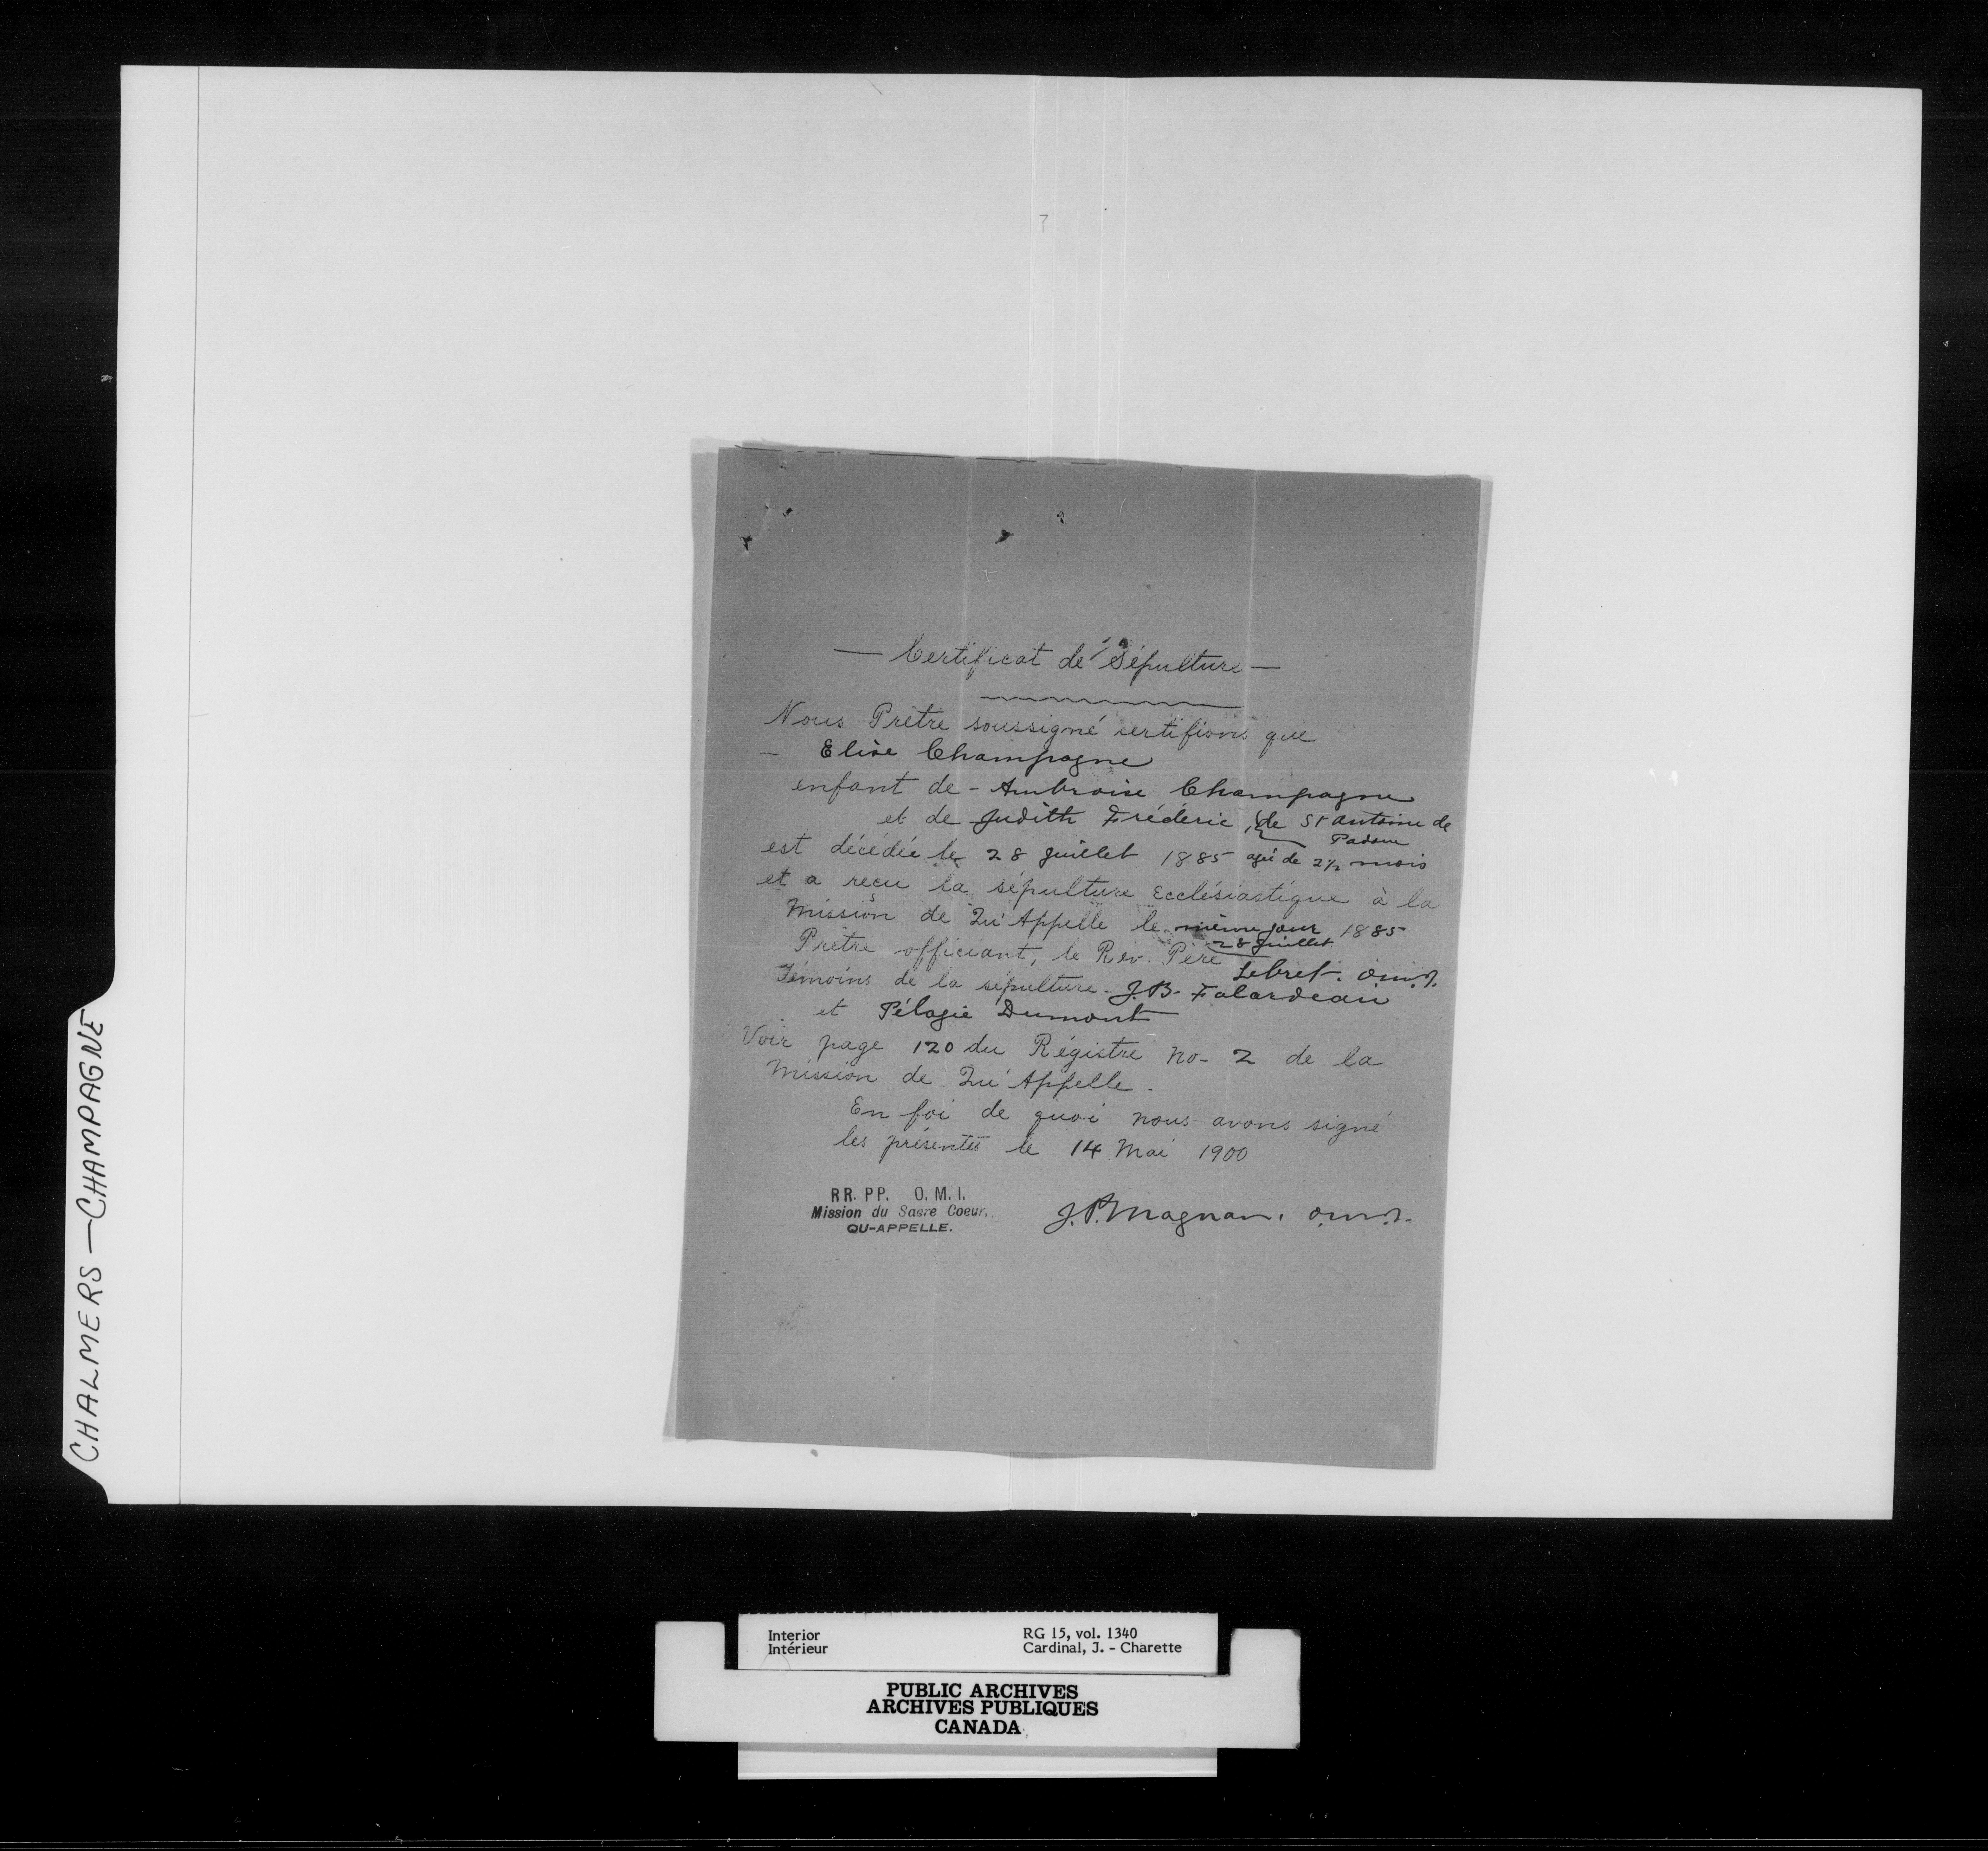 — Certificat de Sépulture —
Nous Prêtre soussigné certifions que
— Elise Champagne
enfant de - Ambroise Champagne
et de Judith Fréderic, de St Antoine de
Padoue
est décédée le 28 juillet 1885 agée de 2½ mois
et a reçu la sépulture Ecclésiastique à la
Mission de Qu'Appelle le même jour 1885
28 Juillet
Prêtre officiant, le Rev. Père Lebret. O.M.I.
Témoins de la sépulture - J.B. Falardeau
et Pélagie Dumont
Voir page 120 du Régistre No- 2 de la
Mission de Qu'Appelle -
En foi de quoi nous avons signé
les présentes le 14 Mai 1900
RR. PP. O. M. I.
Mission du Sacre Coeur.
QU-APPELLE.
J.P. Magnan. O.M.I.
CHALMERS — CHAMPAGNE
Interior RG 15, vol. 1340
Intérieur Cardinal, J. - Charette
PUBLIC ARCHIVES
ARCHIVES PUBLIQUES
CANADA